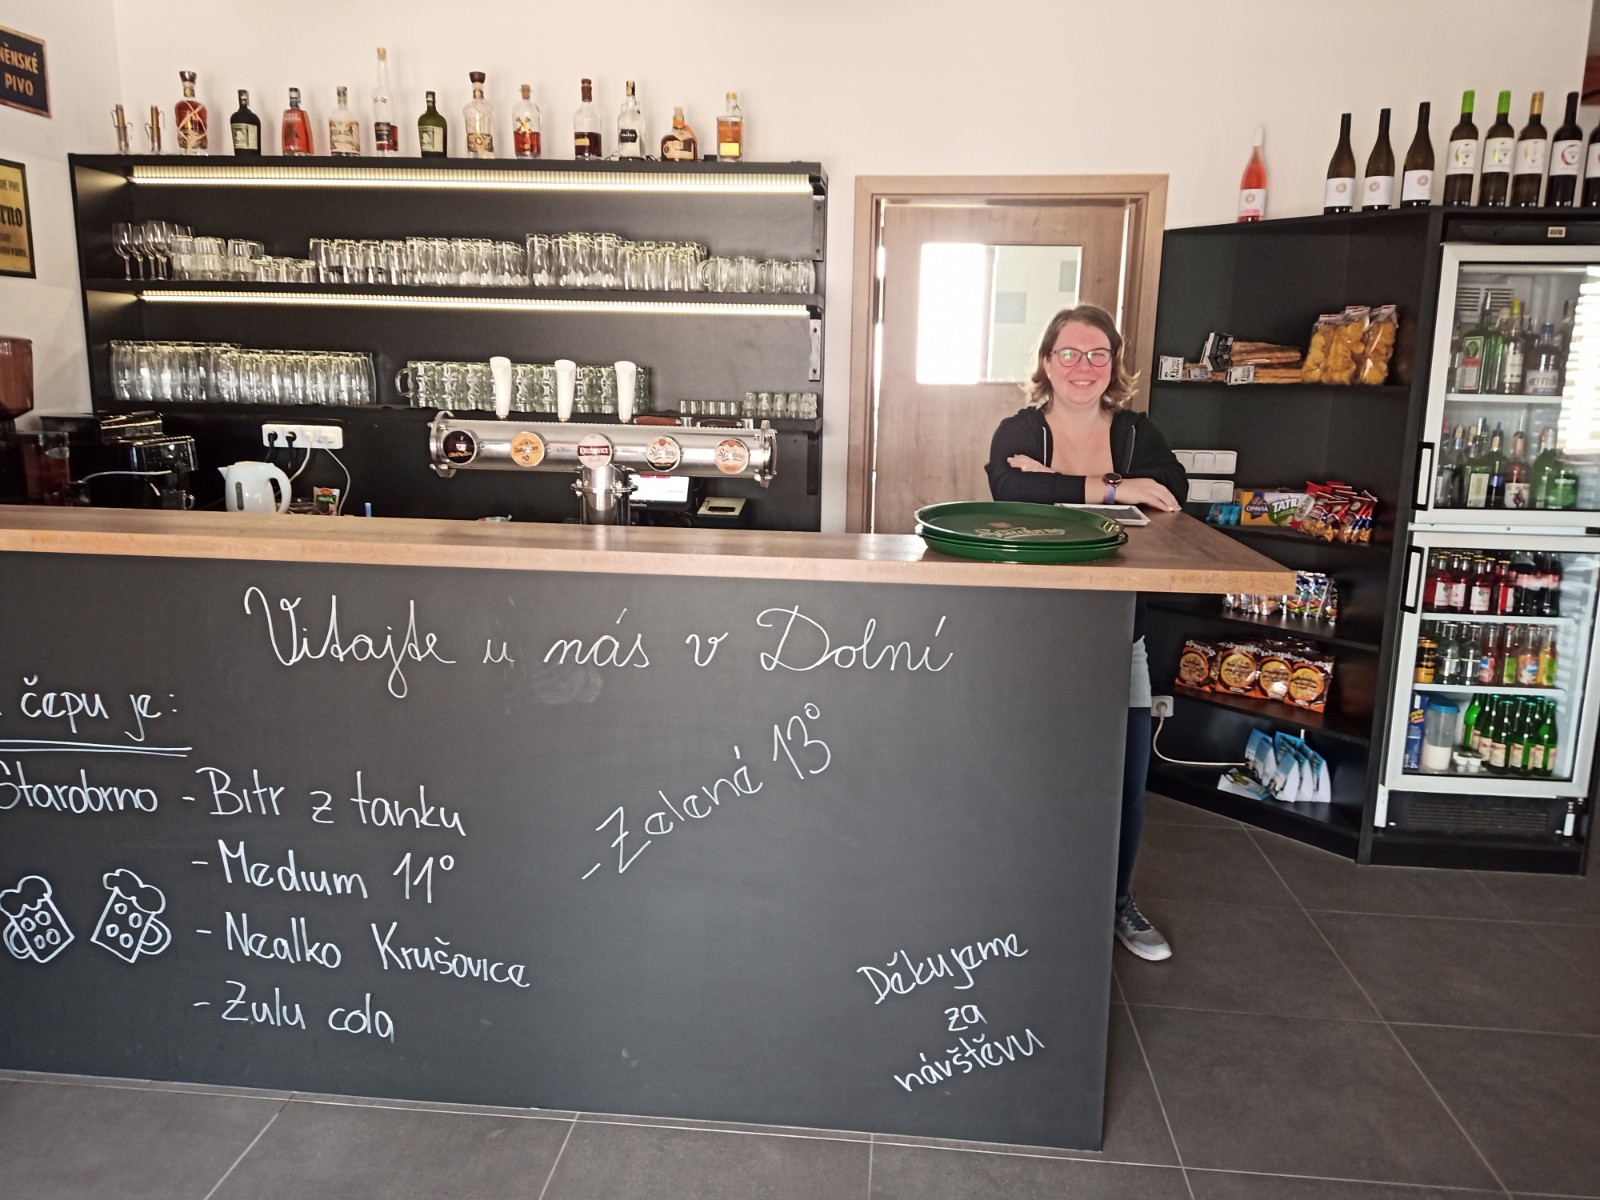 PIVO
Vitajte u nás v Dolní
čepu je:
Starobrno - Bitr z tanku
- Medium 11°
- Nealko Krušovice
- Zulu cola
- Zelené 13°
Děkujeme
za
návštěvu
KRUŠOVICE
Starobrno
OPAVIA
TATR